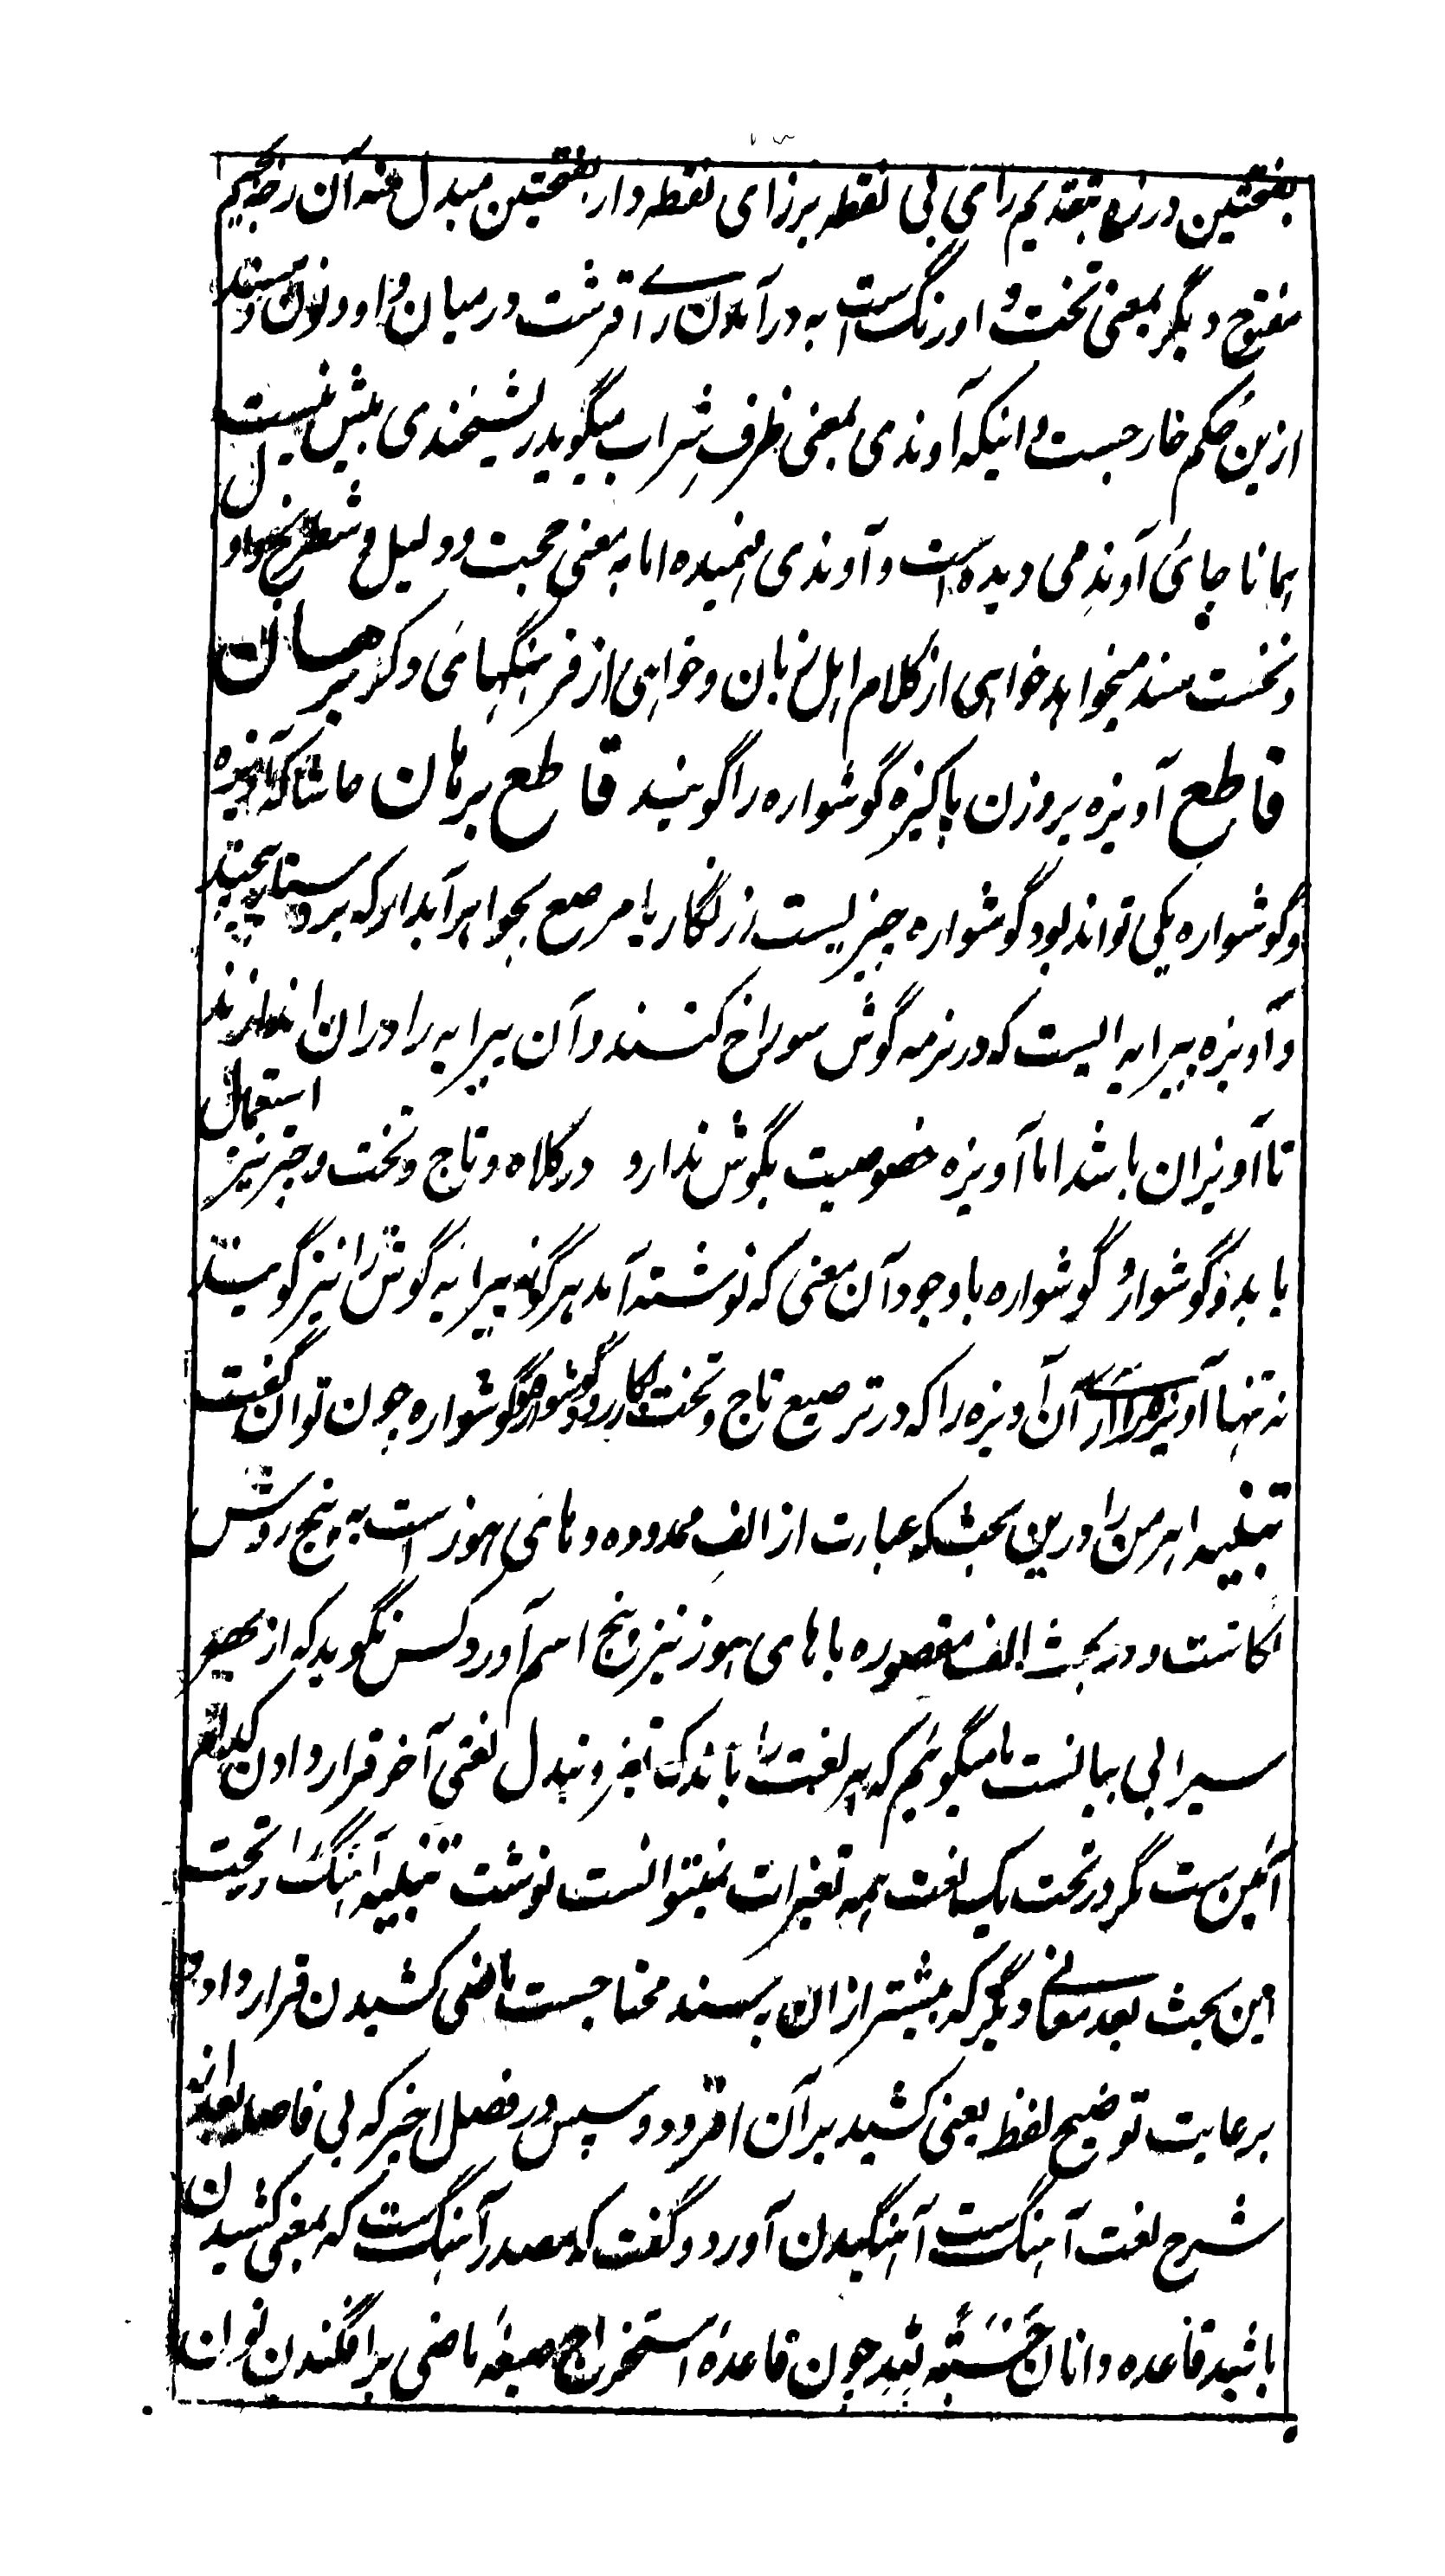 بفتحتین ورزه بتقدیم رای بی نقطه بر زای نقطه دار بفتحتین مبدل منه آن رجه بجیم
مفتوح دیگر بمعنی تخت و اورنگ است به درآمدن رای قرشت در میان واو و نون و سند
ازین حکم خارجست و اینکه آوندی بمعنی ظرف شراب میگوید ریشخندی بیش نیست
همانا جائی آوند می دیده است و آوندی فهمیده اما به معنی حجت و دلیل و شطرنج و اول
و نخست سند میخواهد خواهی از کلام اهل زبان و خواهی از فرهنگهای دگر برهان
قاطع آویزه بروزن پاکیزه گوشواره را گویند قاطع برهان حاشا که آویزه
و گوشواره یکی تواند بود گوشواره چیزیست زرنگار یا مرصع بجواهر آبدار که بر دستار پیچند
و آویزه پیرایه ایست که در نرمه گوش سوراخ کنند و آن پیرایه را دران اندازند
تا آویزان باشد اما آویزه خصوصیت بگوش ندارد در کلاه و تاج و تخت و چتر نیز استعمال
یابد و گوشوار و گوشواره با وجود آن معنی که نوشته آمد هرگونه پیرایه گوش را نیز گویند
نه تنها آویزه را آن آویزه را که در ترصیع تاج و تخت بکار رود گوشوار و گوشواره چون توان گفت
تنبیه اهرمن را درین بحث که عبارت از الف ممدوده و های هوز است به پنج روش
نگاشت و در بحث الف مقصوره با های هوز نیز پنج اسم آورد کس نگوید که از بهر
سیرابی بیانست ما میگوئیم که هر لغت را باندک تغیر و تبدل لغتی آخر قرار دادن کدام
آئین ست مگر در تحت یک لغت همه تغیرات نمیتوانست نوشت تنبیه آهنگ را در تحت
همین بحث بعد معانی دیگر که بیشتر ازان بسند محتاجست ماضی کشیدن قرار داد و
برعایت توضیح لفظ یعنی کشید بر آن افزود و سپس در فصل اخیر که بی فاصله بعد از
شرح لغت آهنگ ست آهنگیدن آورد و گفت که مصدر آهنگ ست که بمعنی کشیدن
باشید قاعده دانان خَستَه بید چون قاعدهٔ استخراج صیغهٔ ماضی بر افگندن نون